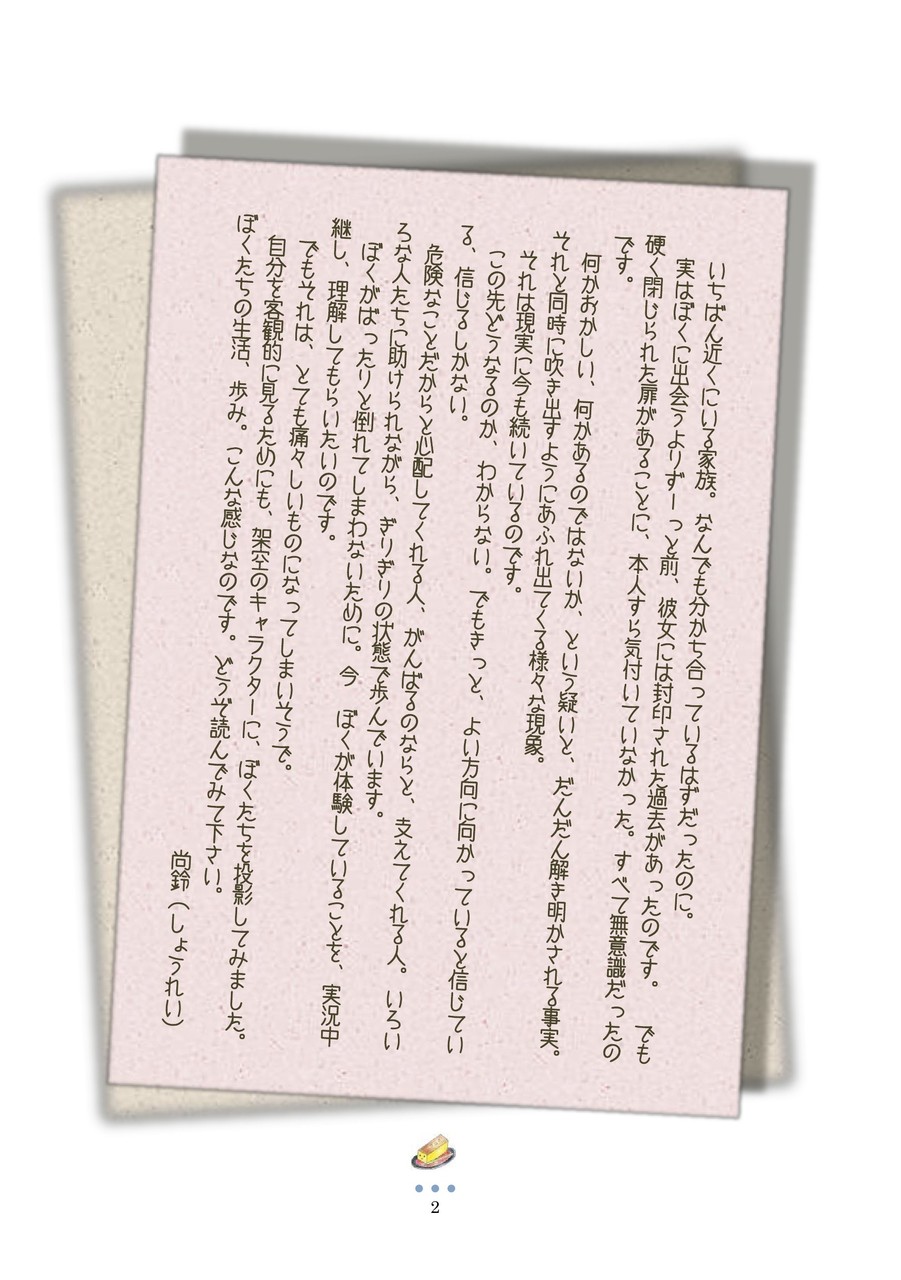 いちばん近くにいる家族。なんでも分かち合っているはずだったのに。
実はぼくに出会うよりずーっと前、彼女には封印された過去があったのです。　でも
硬く閉じられた扉があることに、本人すら気付いていなかった。すべて無意識だったの
です。
何かおかしい、何かあるのではないか、という疑いと、だんだん解き明かされる事実。
それと同時に吹き出すようにあふれ出てくる様々な現象。
それは現実に今も続いているのです。
この先どうなるのか、わからない。でもきっと、よい方向に向かっていると信じてい
る、信じるしかない。
危険なことだからと心配してくれる人、がんばるのならと、支えてくれる人。いろい
ろな人たちに助けられながら、ぎりぎりの状態で歩んでいます。
ぼくがばったりと倒れてしまわないために。今　ぼくが体験していることを、実況中
継し、理解してもらいたいのです。
でもそれは、とても痛々しいものになってしまいそうで。
自分を客観的に見るためにも、架空のキャラクターに、ぼくたちを投影してみました。
ぼくたちの生活、歩み。こんな感じなのです。どうぞ読んでみて下さい。
尚鈴（しょうれい）
2